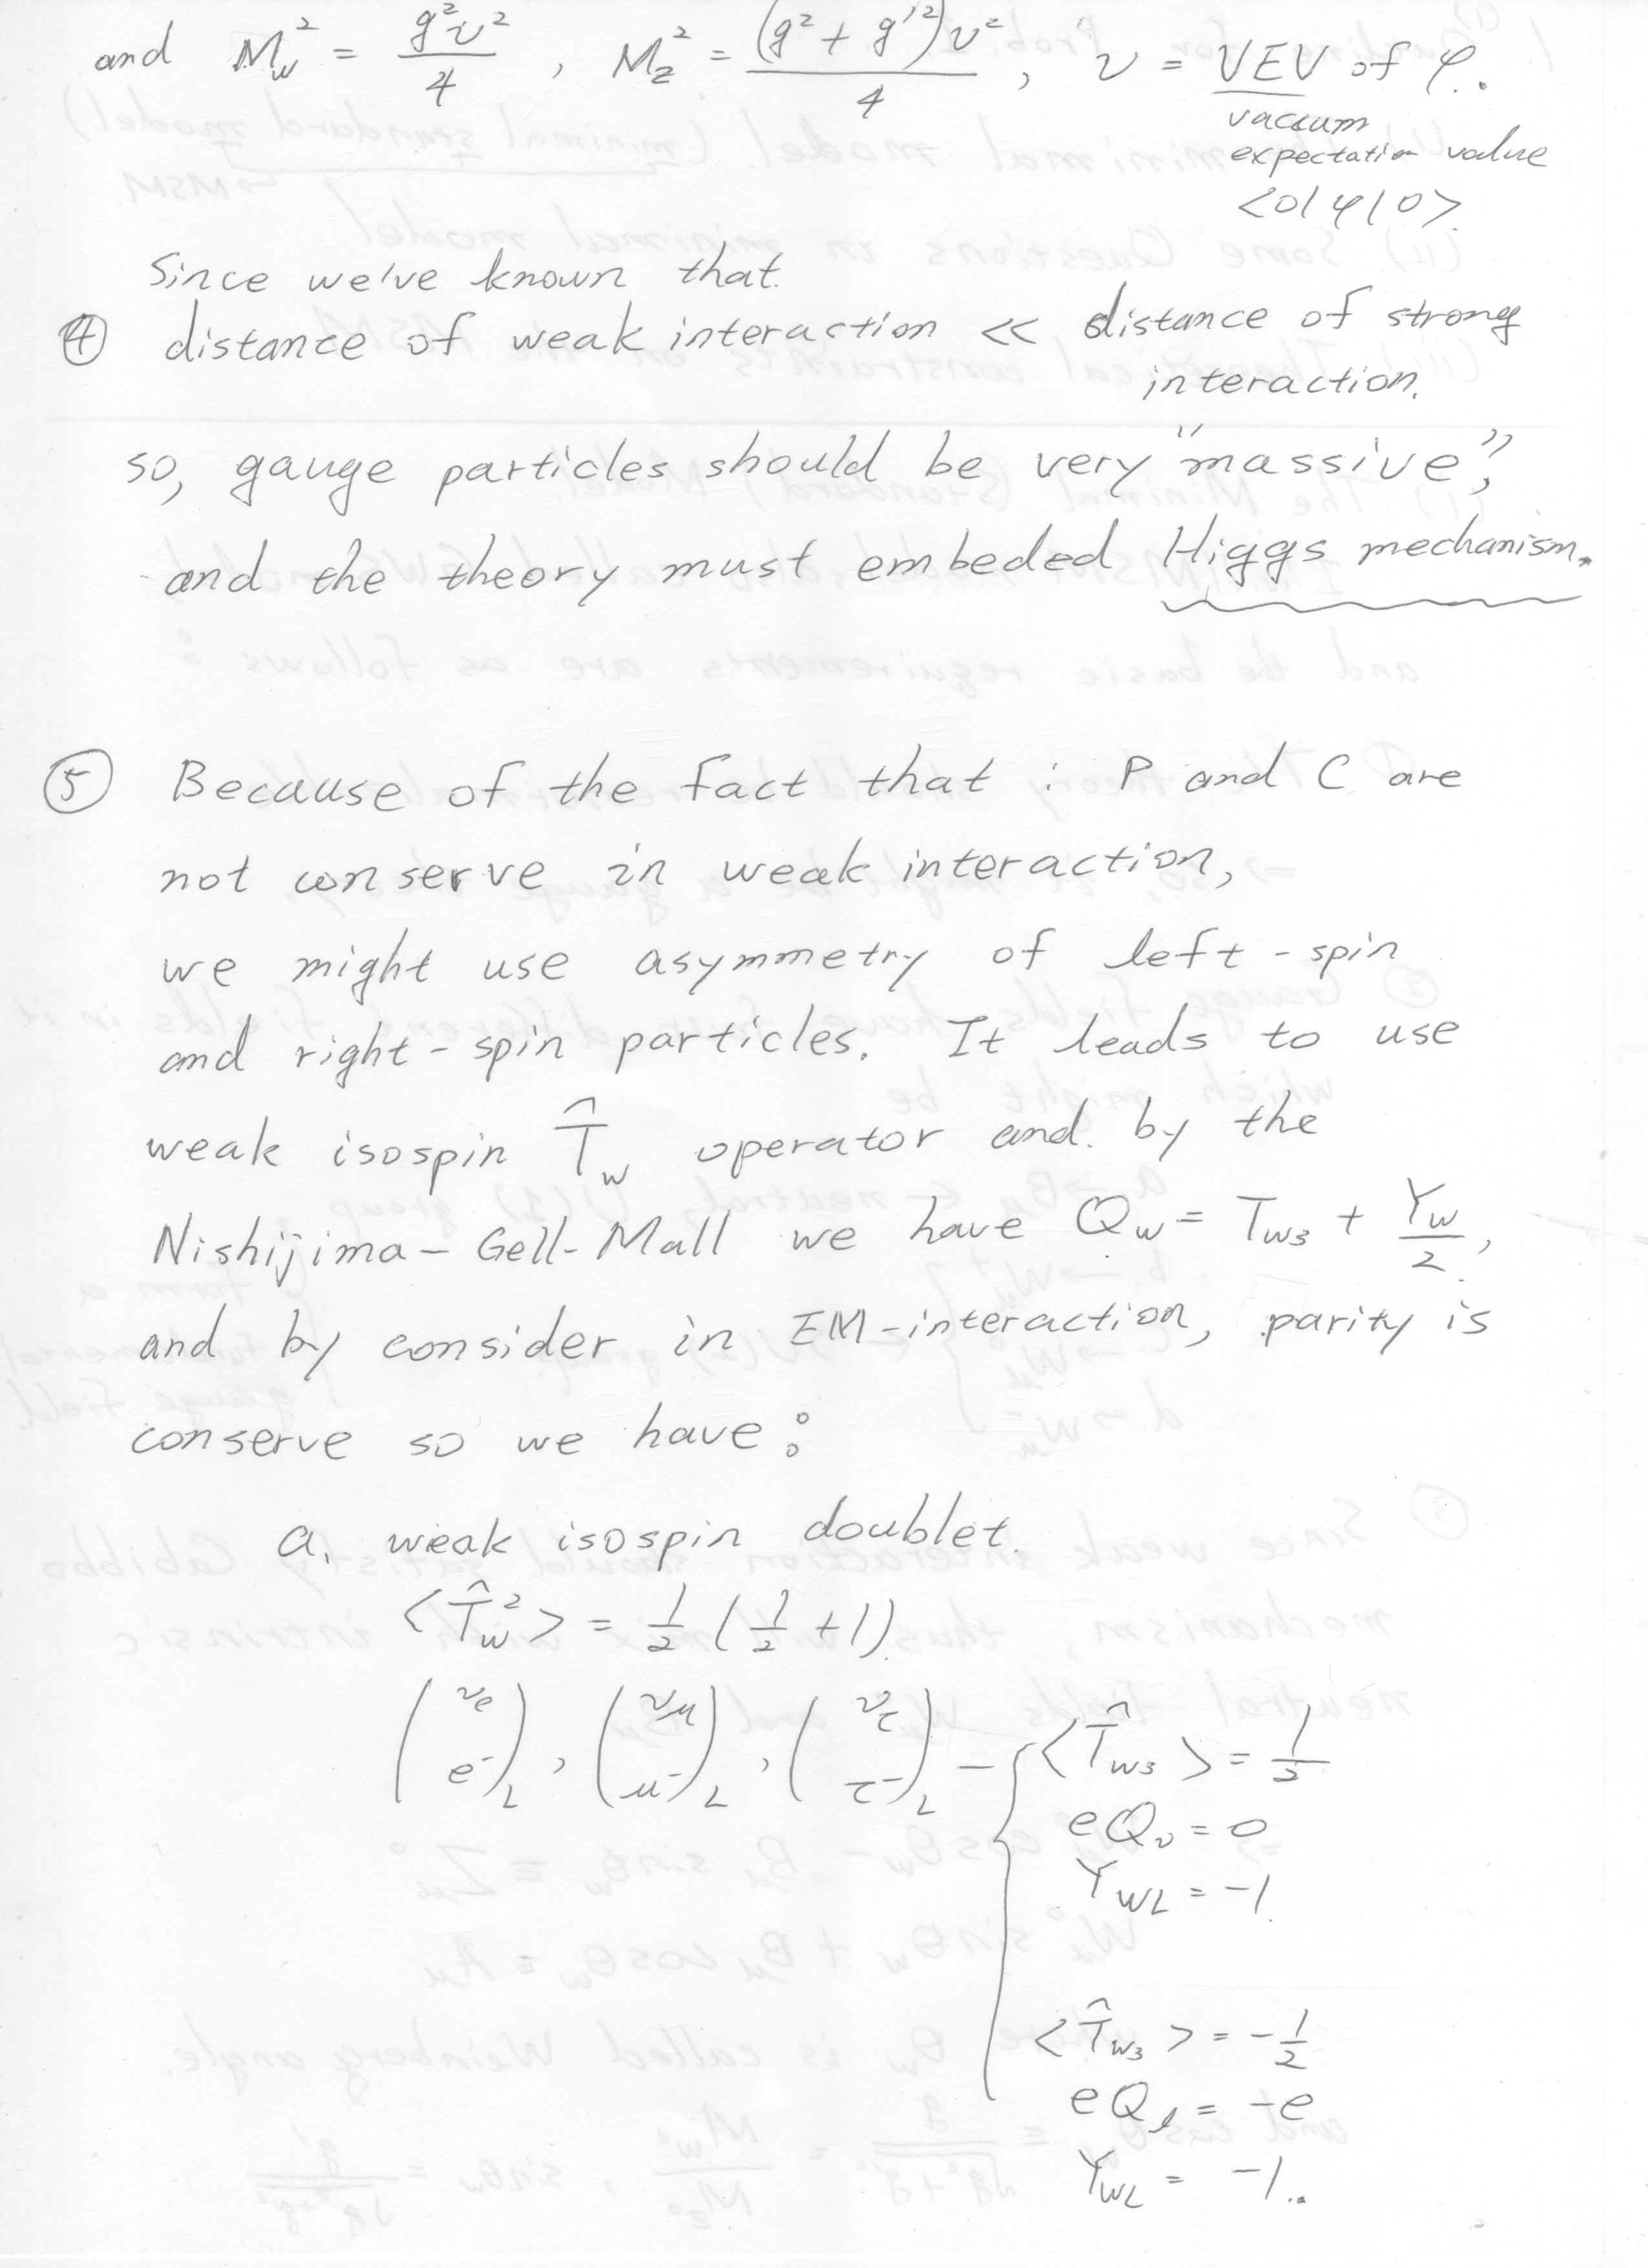 and M_w² = g²v²/4 , M_z² = (g² + g'²)v²/4 , v = VEV of φ.
vaccum
expectation value
<0|φ|0>
Since we've known that.
④ distance of weak interaction << distance of strong
interaction.
so, gauge particles should be very "massive",
and the theory must embeded Higgs mechanism.
⑤ Because of the fact that : P and C are
not conserve in weak interaction,
we might use asymmetry of left-spin
and right-spin particles. It leads to use
weak isospin T̂_w operator and. by the
Nishijima-Gell-Mall we have Q_w = T_w3 + Y_w/2,
and by consider in EM-interaction, parity is
conserve so we have :
a. weak isospin doublet.
<T̂_w²> = 1/2 (1/2 + 1)
(ν_e e⁻)_L , (ν_μ μ⁻)_L , (ν_τ τ⁻)_L — { <T̂_w3> = 1/2
eQ_ν = 0
Y_WL = -1
<T̂_w3> = -1/2
eQ_l = -e
Y_WL = -1.